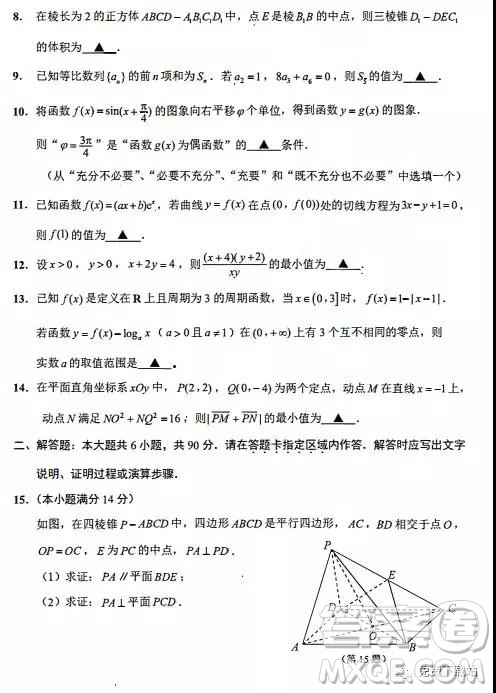 8. 在棱长为2的正方体ABCD－A₁B₁C₁D₁中，点E是棱B₁B的中点，则三棱锥D₁－DEC₁
的体积为 ▲ .
9. 已知等比数列{aₙ}的前n项和为Sₙ. 若a₂=1，8a₃+a₆=0，则S₅的值为 ▲ .
10. 将函数f(x)=sin(x+π/4)的图象向右平移φ个单位，得到函数y=g(x)的图象.
则“φ=3π/4”是“函数g(x)为偶函数”的 ▲ 条件.
（从“充分不必要”、“必要不充分”、“充要”和“既不充分也不必要”中选填一个）
11. 已知函数f(x)=(ax+b)eˣ，若曲线y=f(x)在点(0, f(0))处的切线方程为3x－y+1=0，
则f(1)的值为 ▲ .
12. 设x>0，y>0，x+2y=4，则(x+4)(y+2)/xy的最小值为 ▲ .
13. 已知f(x)是定义在R上且周期为3的周期函数，当x∈(0,3]时，f(x)=1－|x－1|.
若函数y=f(x)－logₐx（a>0且a≠1）在(0,+∞)上有3个互不相同的零点，则
实数a的取值范围是 ▲ 。
14. 在平面直角坐标系xOy中，P(2,2)，Q(0,－4)为两个定点，动点M在直线x=－1上，
动点N满足NO²+NQ²=16；则|PM+PN|的最小值为 ▲ .
二、解答题：本大题共6小题，共90分. 请在答题卡指定区域内作答. 解答时应写出文字
说明、证明过程或演算步骤.
15.（本小题满分14分）
如图，在四棱锥P－ABCD中，四边形ABCD是平行四边形，AC，BD相交于点O，
OP=OC，E为PC的中点，PA⊥PD.
（1）求证：PA∥平面BDE；
（2）求证：PA⊥平面PCD.
P
E
D
C
O
A
B
（第15题）